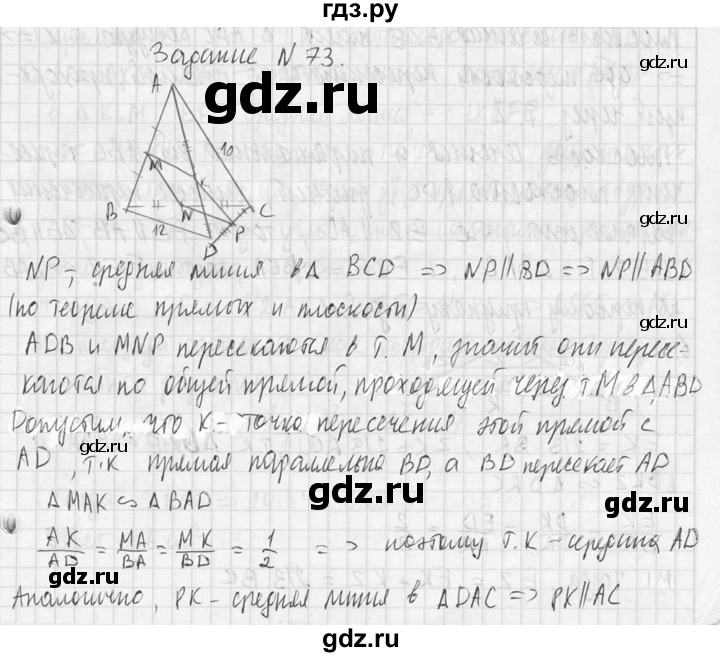 гдз.ру
Задание N 73.
A
10
M
K
B
N
C
12
P
D
NP - средняя линия в Δ BCD => NP || BD => NP || ABD
(по теореме прямых и плоскости)
ADB и MNP пересекаются в т. M, значит они пересе-
каются по общей прямой, проходящей через т. M в ΔABD
Допустим, что K - точка пересечения этой прямой с
AD, т.к прямая параллельна BD, а BD пересекает AD
Δ MAK ∽ Δ BAD
AK/AD = MA/BA = MK/BD = 1/2 => поэтому т. K - середина AD
Аналогично, PK - средняя линия в ΔDAC => PK || AC
gdz.ru
gdz.ru
gdz.ru
gdz.ru
gdz.ru
gdz.ru
gdz.ru
gdz.ru